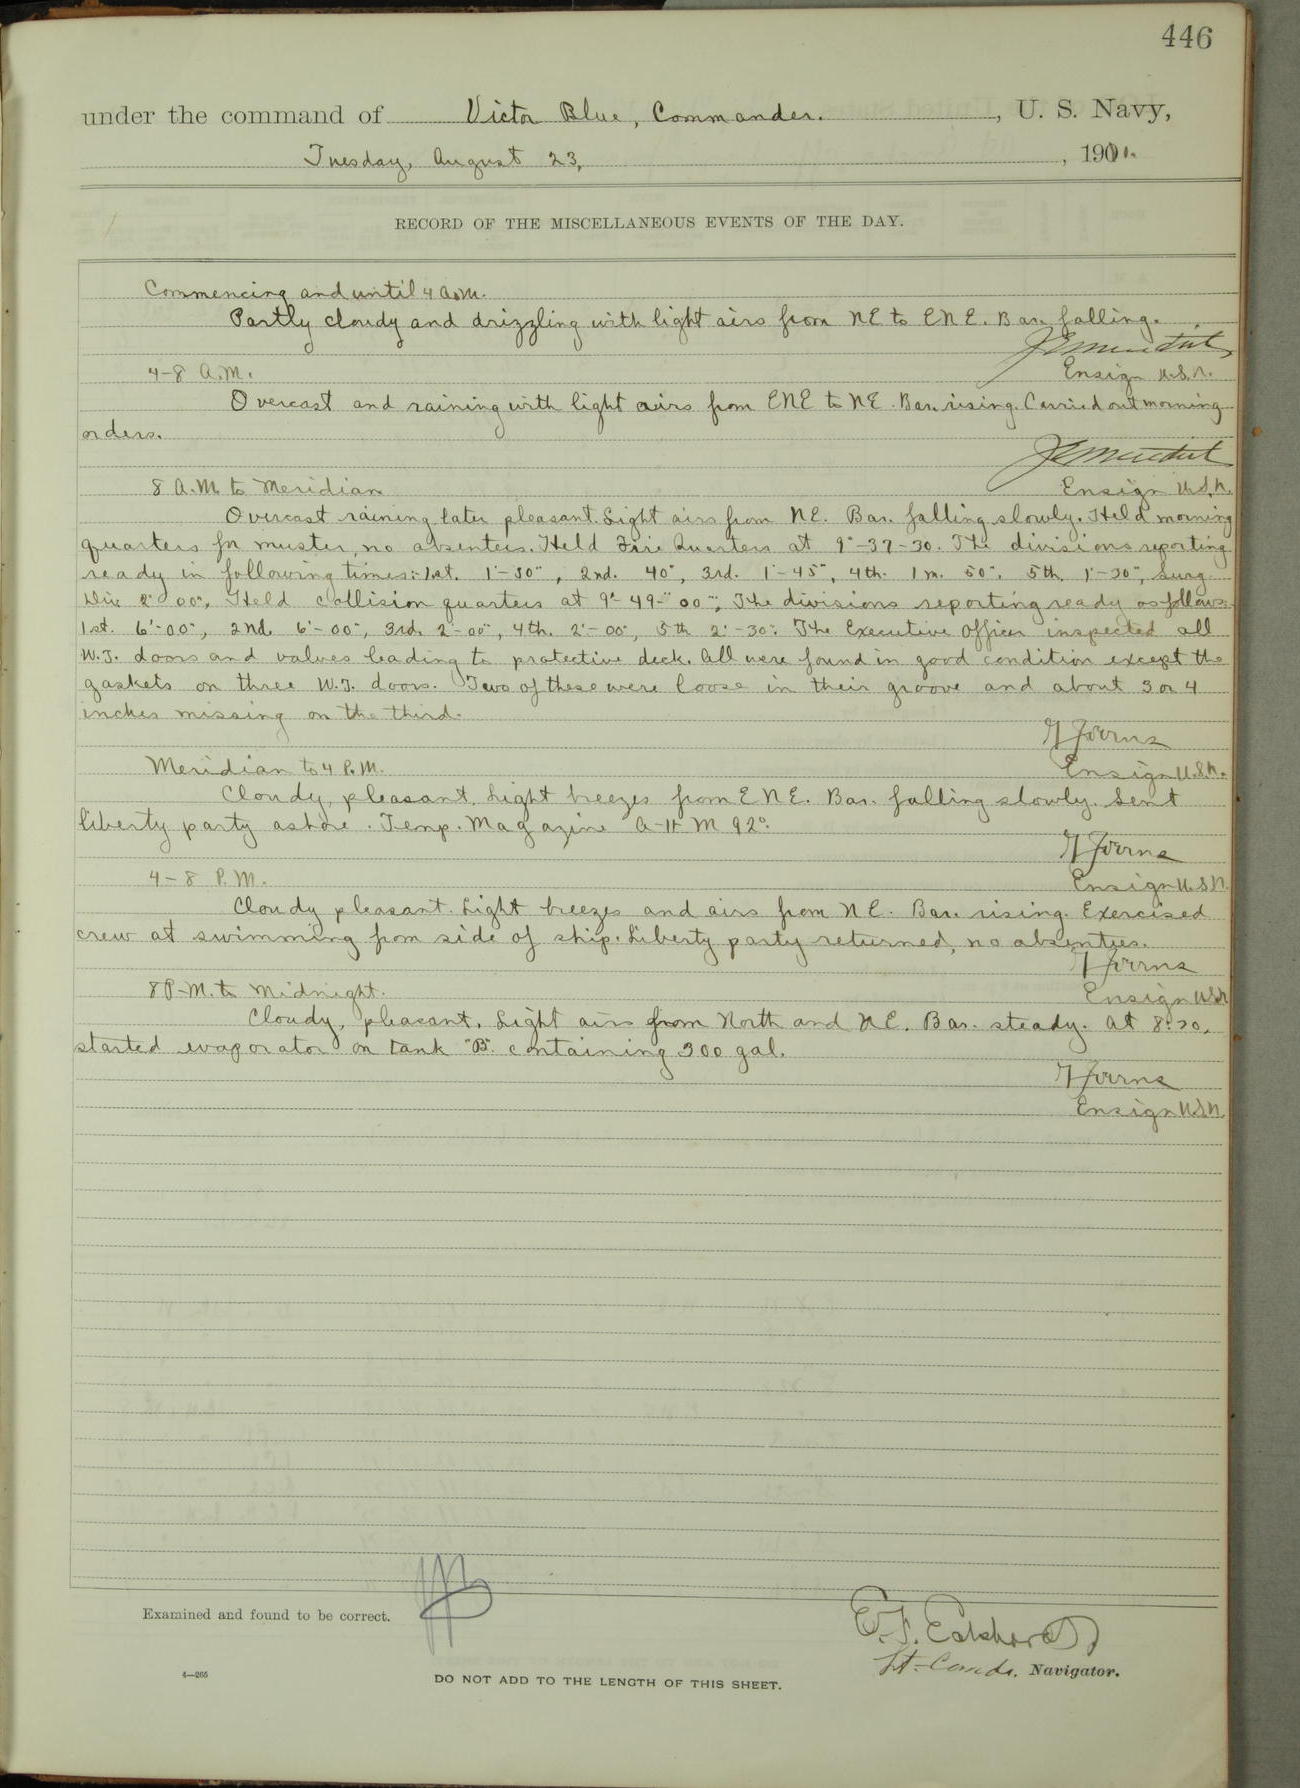 446
under the command of Victor Blue, Commander. , U. S. Navy,
Tuesday, August 23, , 1910.
RECORD OF THE MISCELLANEOUS EVENTS OF THE DAY.
Commencing and until 4 a.m.
Partly cloudy and drizzling with light airs from NE to ENE. Bar. falling.
4-8 A.M.
Ensign U.S.N.
Overcast and raining with light airs from ENE to NE. Bar. rising. Carried out morning
orders.
8 A.M. to Meridian
Ensign U.S.N.
Overcast raining later pleasant. Light airs from NE. Bar. falling slowly. Held morning
quarters for muster, no absentees. Held Fire Quarters at 9-37-30. The divisions reporting
ready in following times:- 1st. 1'-50", 2nd. 40", 3rd. 1'-45", 4th. 1m. 50", 5th 1'-30", Surg.
Div 2' 00". Held collision quarters at 9-49-00"; The divisions reporting ready as follows:-
1st. 6'-00", 2nd. 6'-00", 3rd. 2'-00", 4th. 2'-00", 5th 2'-30". The Executive Officer inspected all
W.T. doors and valves leading to protective deck. All were found in good condition except the
gaskets on three W.T. doors. Two of these were loose in their groove and about 3 or 4
inches missing on the third.
Meridian to 4 P.M.
Ensign U.S.N.
Cloudy, pleasant. Light breezes from ENE. Bar. falling slowly. Sent
liberty party ashore. Temp. Magazine A-H M 92°.
4-8 P.M.
Ensign U.S.N.
Cloudy pleasant. Light breezes and airs from NE. Bar. rising. Exercised
crew at swimming from side of ship. Liberty party returned, no absentees.
8 P.M. to Midnight.
Ensign U.S.N.
Cloudy, pleasant. Light airs from North and NE. Bar. steady. At 8:30,
started evaporator on tank "B" containing 300 gal.
Ensign U.S.N.
Examined and found to be correct.
Lt-Comdr. Navigator.
4—265
DO NOT ADD TO THE LENGTH OF THIS SHEET.